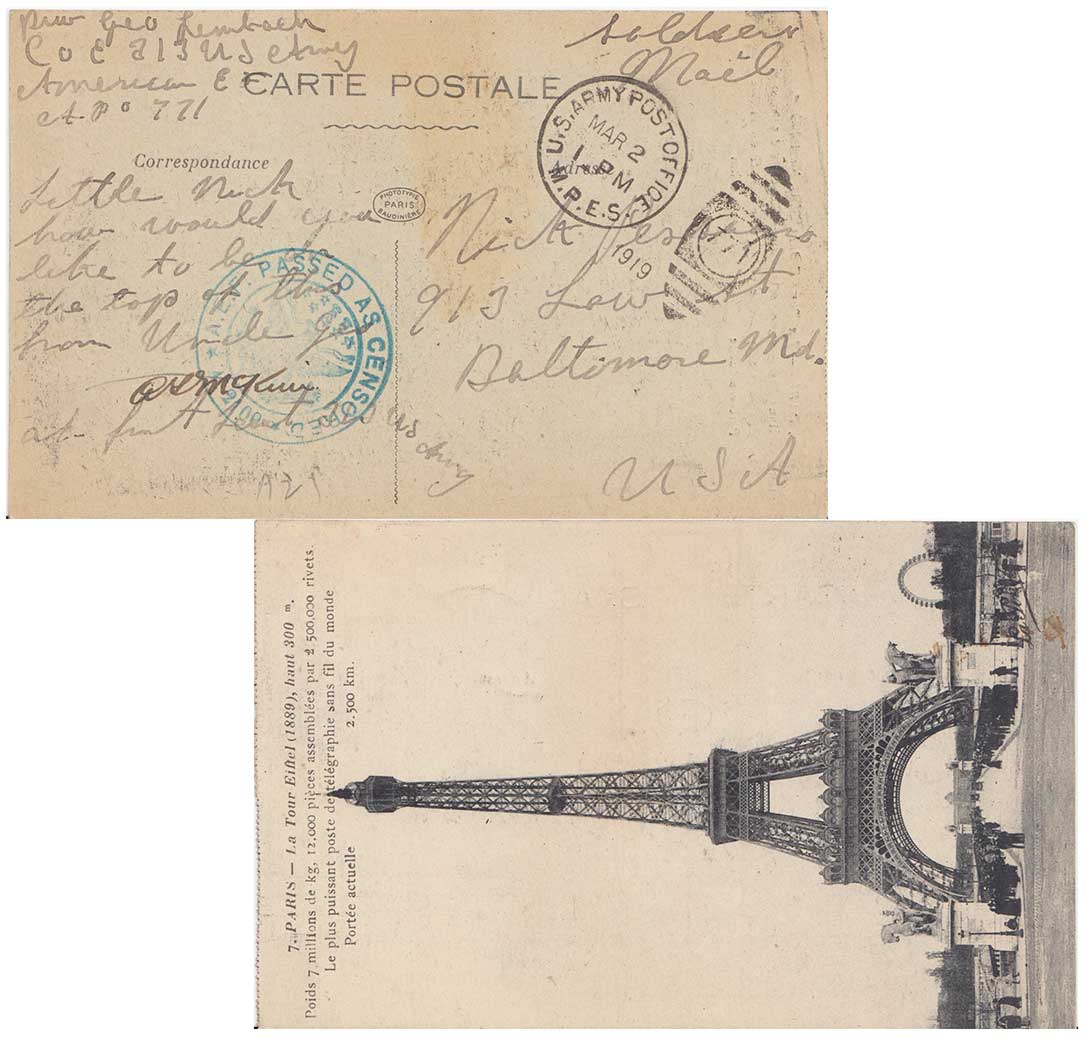 Priv Geo Lembach
Co E 213 US Army
American E
A.P.O 771
Soldiers
Mail
CARTE POSTALE
Correspondance
Adresse
U.S. ARMY POST OFFICE
MAR 2
1 PM
M.P.E.S.
1919
771
PHOTOTYPIE
PARIS
BAUDINIÈRE
Little Nick
how would you
like to be on
the top of this
from Uncle Geo
A.E.F. PASSED AS CENSORED
Nick
913 Low st
Baltimore Md.
USA
1st Lieut
US
Army
7. PARIS — La Tour Eiffel (1889), haut 300 m.
Poids 7 millions de kg, 12.000 pièces assemblées par 2.500,000 rivets.
Le plus puissant poste de télégraphie sans fil du monde
Portée actuelle 2.500 km.